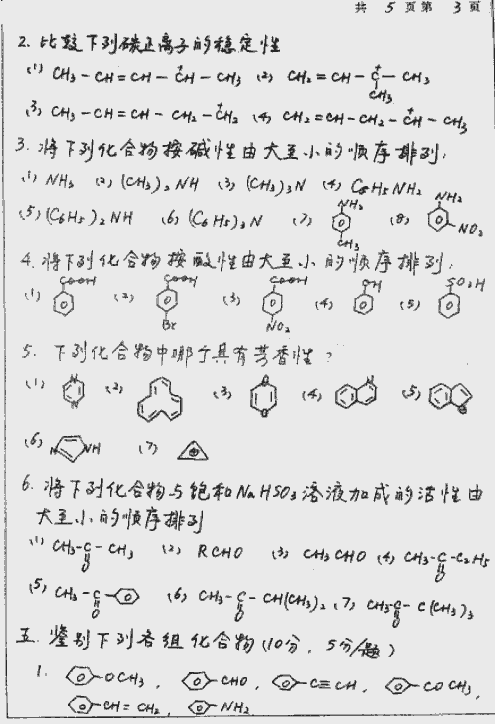 共 5 页 第 3 页
2. 比较下列碳正离子的稳定性
(1) CH3-CH=CH-C⁺H-CH3 (2) CH2=CH-C⁺-CH3
CH3
(3) CH3-CH=CH-CH2-C⁺H2 (4) CH2=CH-CH2-C⁺H-CH3
3. 将下列化合物按碱性由大至小的顺序排列:
(1) NH3 (2) (CH3)2NH (3) (CH3)3N (4) C6H5NH2
(5) (C6H5)2NH (6) (C6H5)3N (7) NH2 CH3 (8) NH2 NO2
4. 将下列化合物按酸性由大至小的顺序排列:
(1) COOH (2) COOH Br (3) COOH NO2 (4) OH (5) SO3H
5. 下列化合物中哪个具有芳香性?
(1) N N (2) (3) (4) N (5)
(6) N NH (7) ⊕
6. 将下列化合物与饱和NaHSO3溶液加成的活性由
大至小的顺序排列
(1) CH3-C-CH3 (2) RCHO (3) CH3CHO (4) CH3-C-C2H5
O O
(5) CH3-C- (6) CH3-C-CH(CH3)2 (7) CH3-C-C(CH3)3
O O O
五. 鉴别下列各组化合物(10分, 5分/题)
1. -OCH3, -CHO, -C≡CH, -COCH3,
-CH=CH2, -NH2